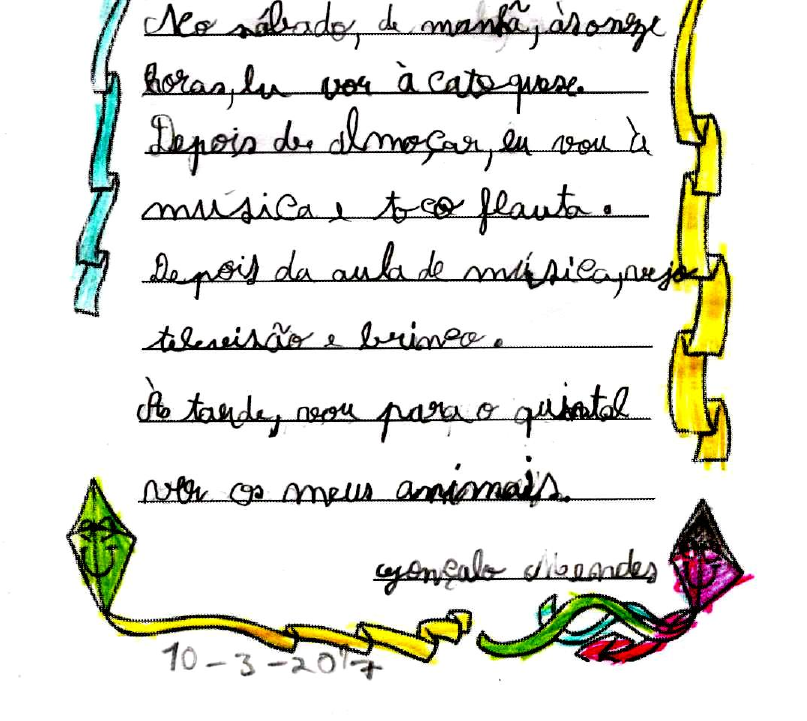 No sábado, de manhã, às onze
horas, eu vou à catequese.
Depois de almoçar, eu vou à
música e toco flauta.
Depois da aula de música, vejo
televisão e brinco.
À tarde, vou para o quintal
ver os meus animais.
Gonçalo Mendes
10-3-2017